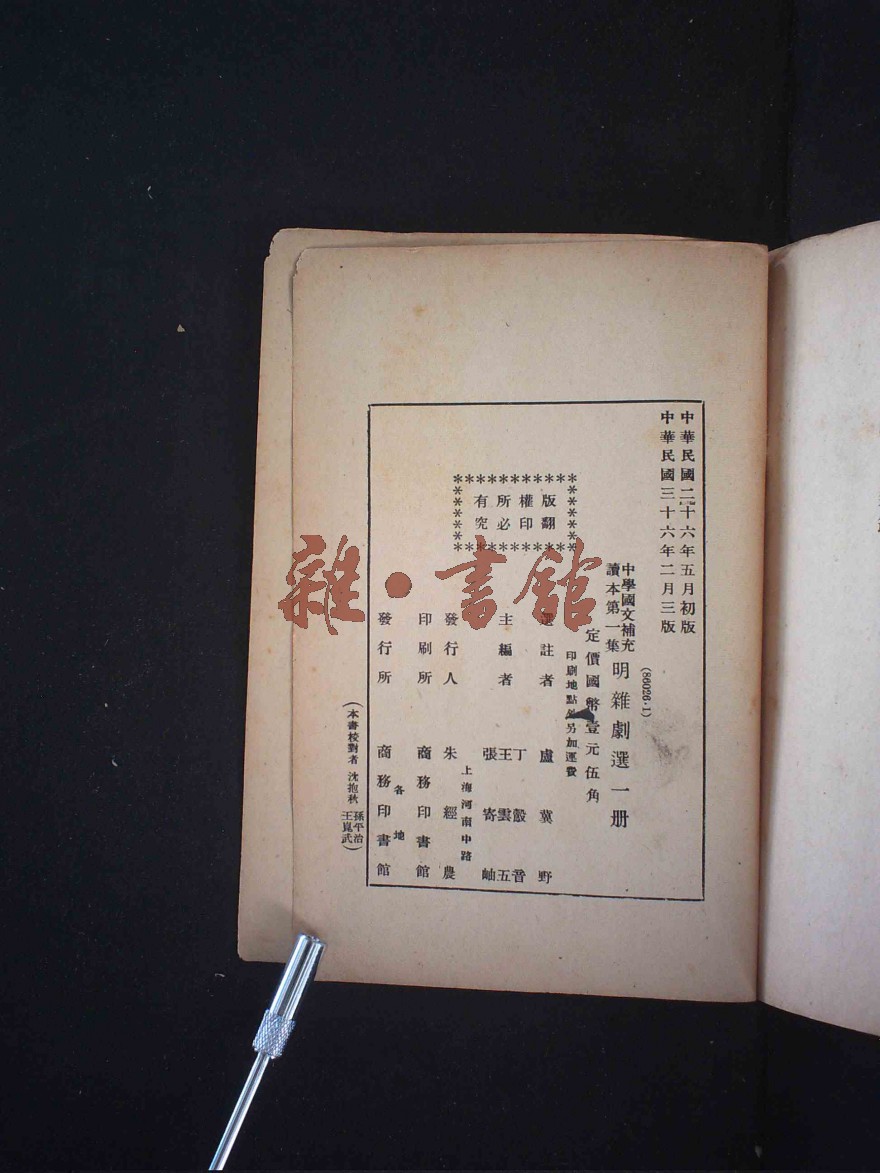 中華民國二十六年五月初版
中華民國三十六年二月三版
(86026·1)
中學國文補充讀本第一集
明雜劇選一册
定價國幣壹元伍角
印刷地點外另加運費
版權所有
翻印必究
選註者 盧冀野
主編者 丁㲄音 王雲五 張寄岫
發行人 朱經農
上海河南中路
印刷所 商務印書館
發行所 各地 商務印書館
(本書校對者 沈抱秋 孫平治 王崑武)
雜·書館